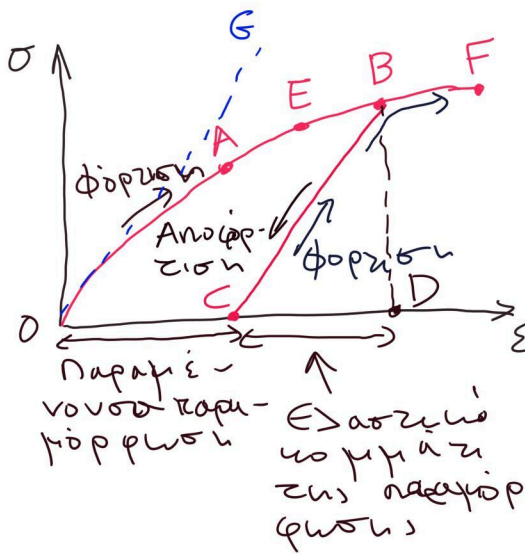 G
σ
F
B
E
A
Φόρτιση
Αποφόρ-
τιση
Φορτιση
C
D
O
ε
Παραμέ-
νουσα παρα-
μόρφωση
Ελαστικό
κομμάτι
της παραμόρ
φωσης